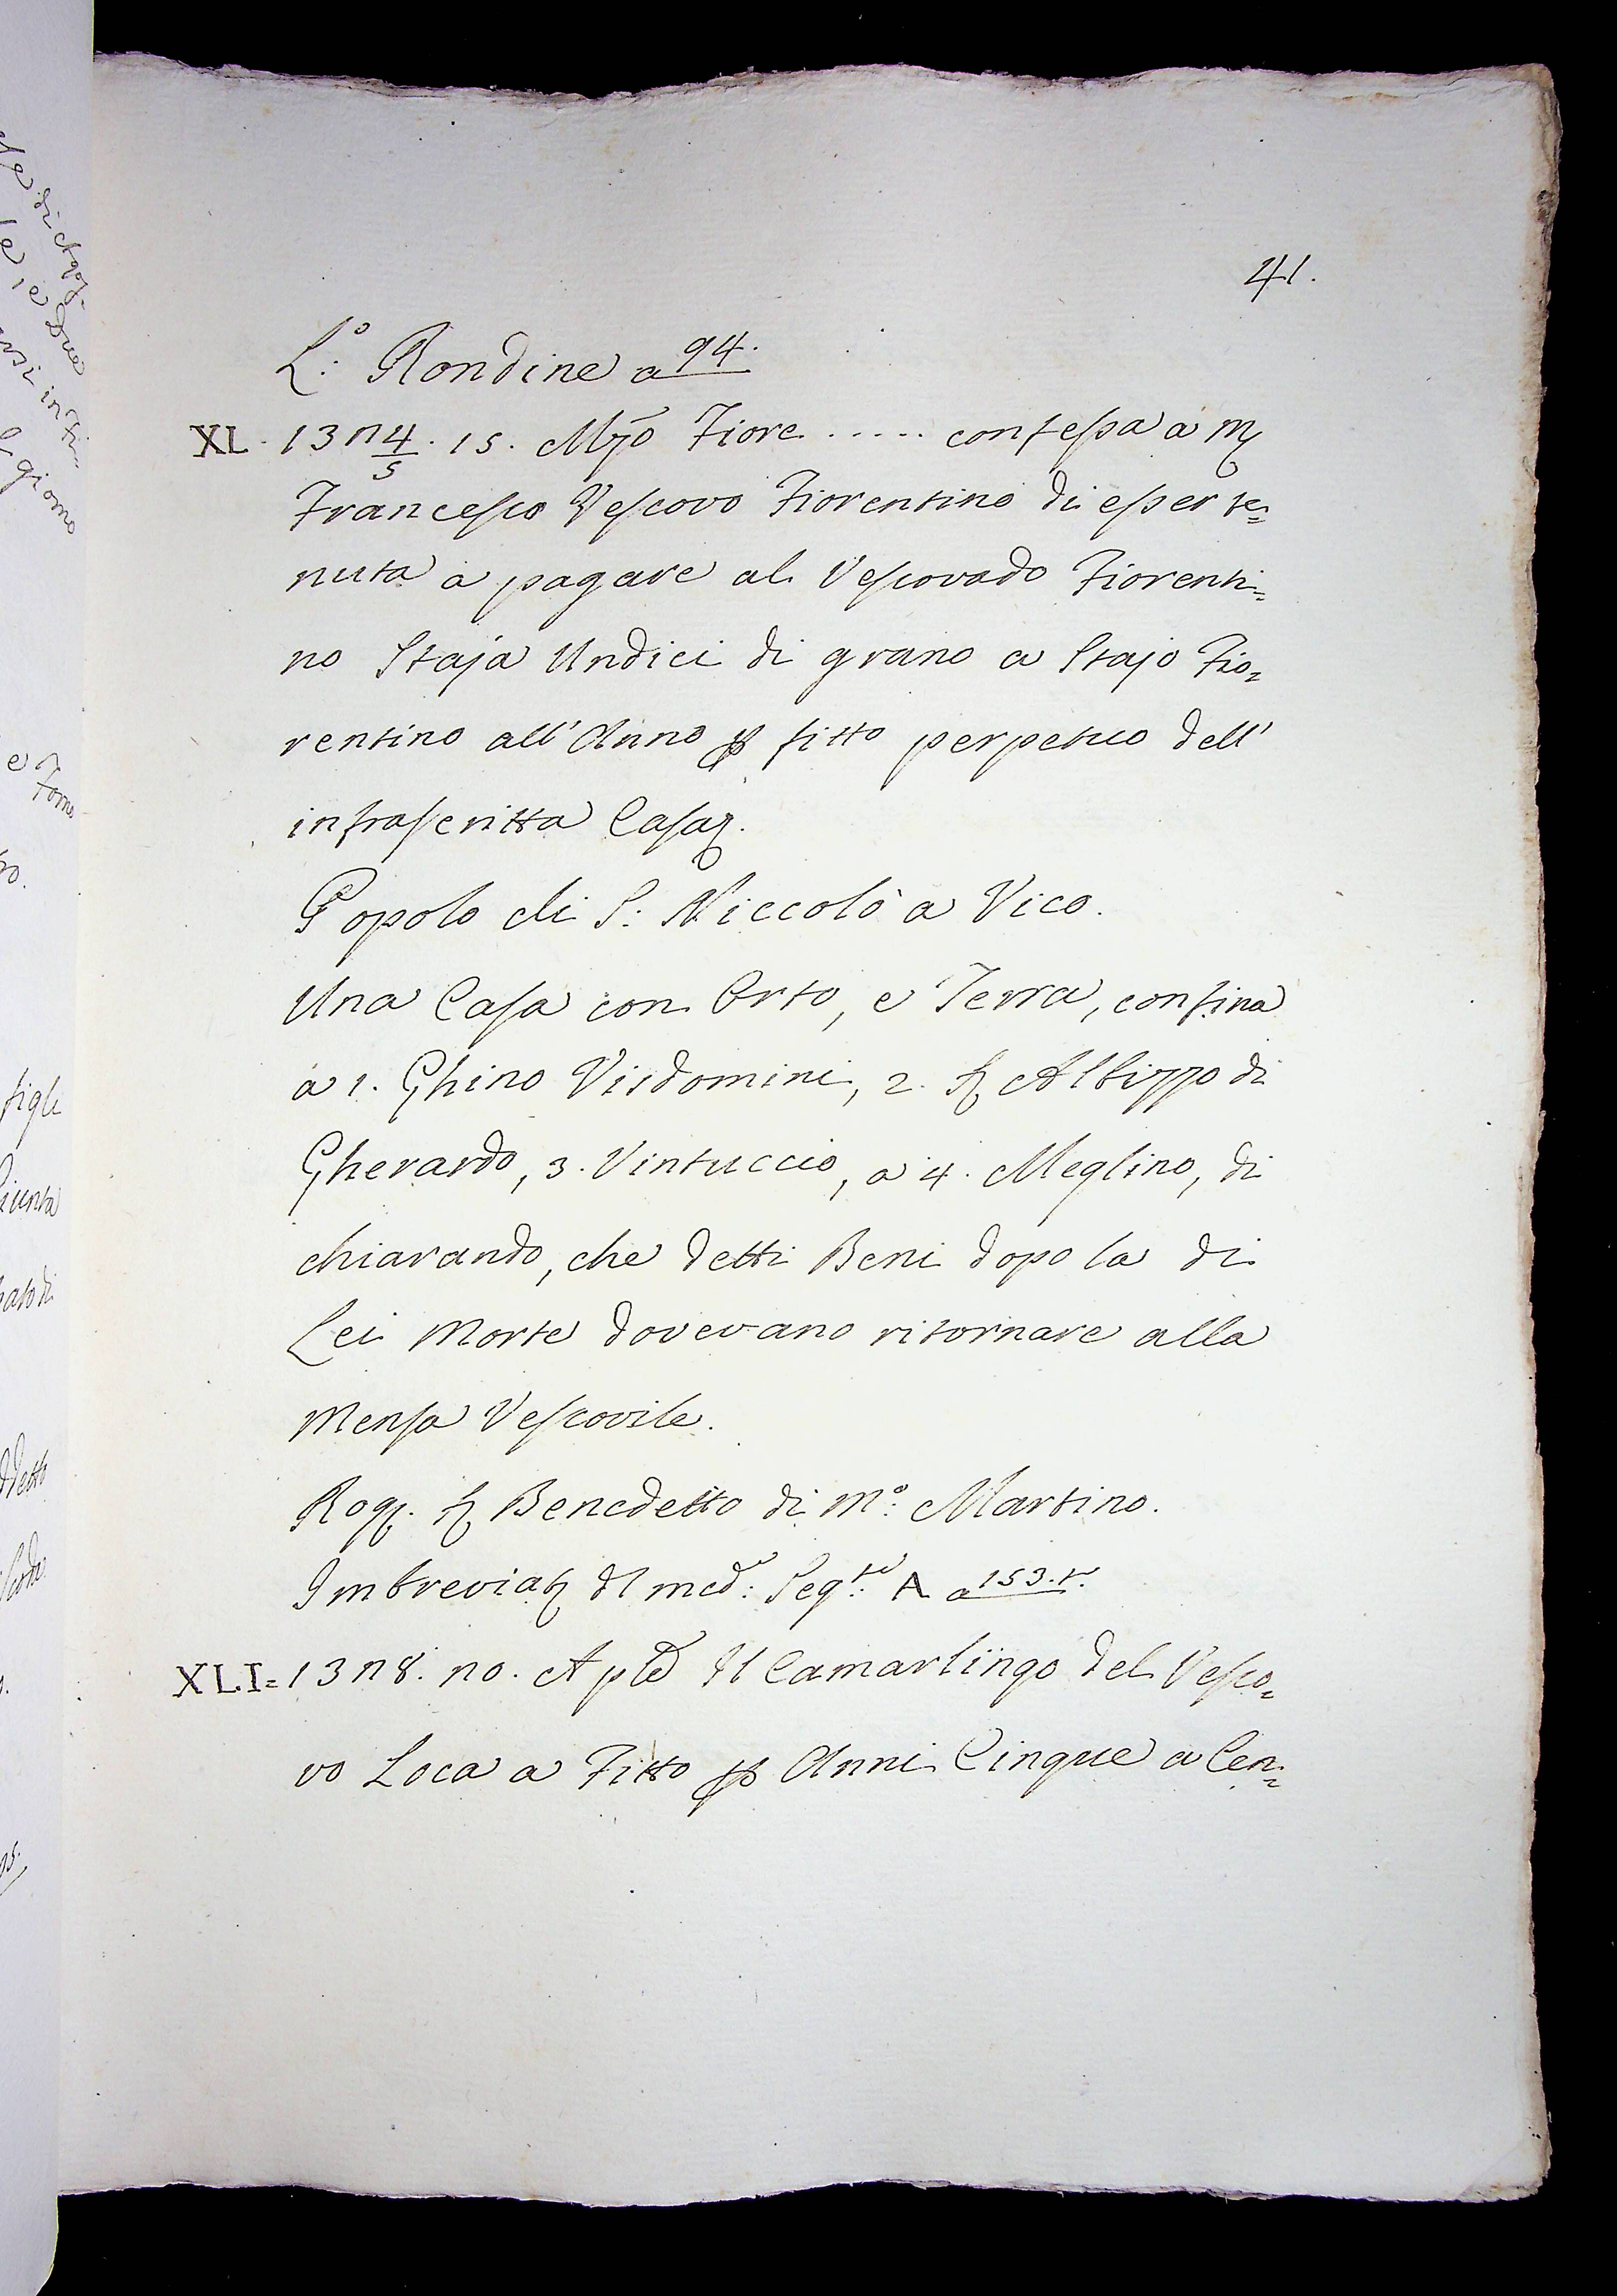 41.
L.º Rondine a 94.
XL. 1324/5. 15. Mzo Fiore ..... confessa a M
Francesco Vescovo Fiorentino di esser te=
nuta a pagare al Vescovado Fiorenti=
no Staja Undici di grano a Stajo Fio=
rentino all' Anno ꝑ fitto perpetuo dell'
infrascritta Casa.
Popolo di S: Niccolò a Vico.
Una Casa con Orto, e Terra, confina
a 1. Ghino Visdomini, 2. Albizzo di
Gherardo, 3. Vintuccio, a 4. Meglino, di
chiarando, che detti Beni dopo la di
Lei Morte dovevano ritornare alla
Mensa Vescovile.
Rog. Benedetto di M.º Martino.
Imbreviat dl med: Seg.to A a 153.t.
XLI= 1328. 20. Aple Il Camarlingo del Vesco=
vo Loca a Fitto ꝑ Anni Cinque a Cen=